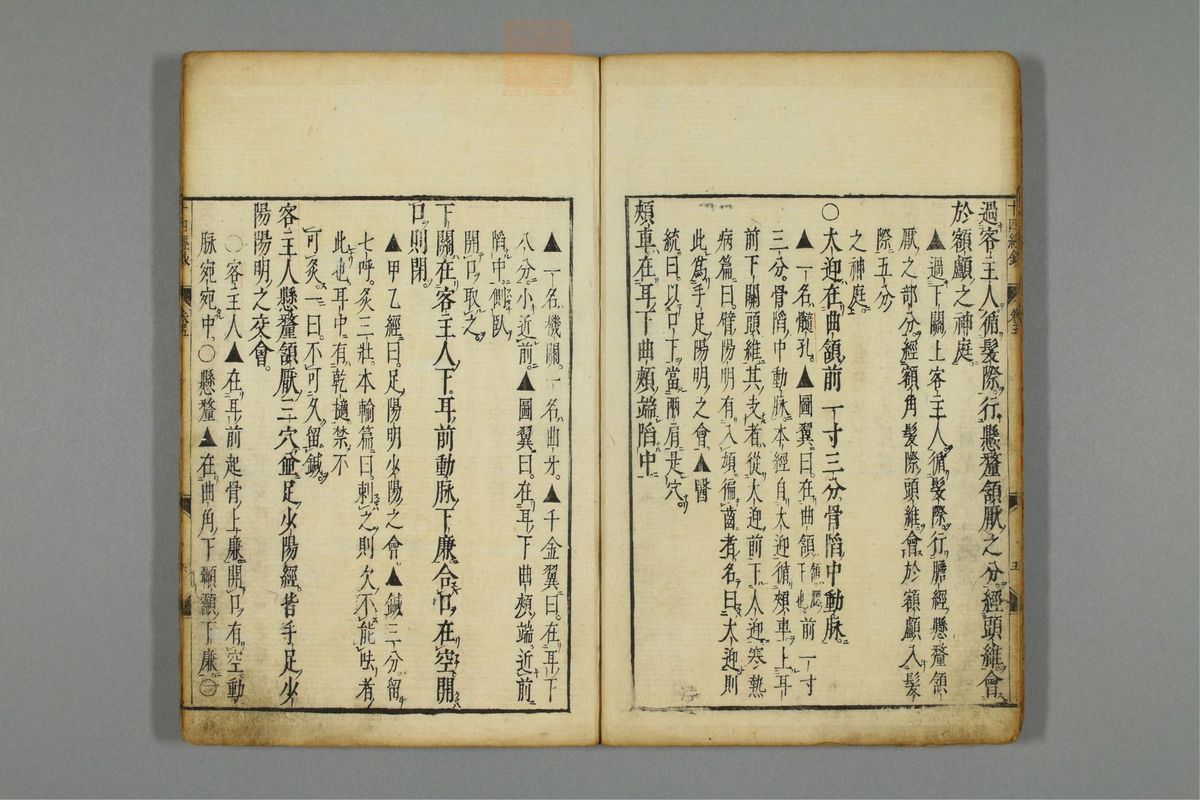 過客主人循髮際行懸釐頷厭之分經頭維會
於額顱之神庭
▲過下關上客主人循髮際行膽經懸釐頷
厭之部分經額角髮際頭維會於額顱入髮
際五分
之神庭
○大迎在曲頷前一寸三分骨䧟中動脉
▲一名髓孔▲圖翼曰在曲頷頷腮下也前一寸
三分骨䧟中動脉本經自大迎循頰車上耳
前下關頭維其支者從大迎前下人迎寒熱
病篇曰臂陽明有入頄徧齒者名曰大迎則
此爲手足陽明之會▲醫
統曰以口下當兩肩是穴
頰車在耳下曲頰端䧟中
▲一名機關一名曲牙▲千金翼曰在耳下
八分小近前▲圖翼曰在耳下曲頰端近前
䧟中側臥
開口取之
下關在客主人下耳前動脉下廉合口在空開
口則閉
▲甲乙經曰足陽明少陽之會▲鍼三分留
七呼灸三壯本輸篇曰刺之則欠不能呿者
此也耳中有乾擿禁不
可灸一曰不可久留鍼
客主人懸釐頷厭三穴並足少陽經皆手足少
陽陽明之交會
○客主人▲在耳前起骨上廉開口有空動
脉宛宛中○懸釐▲在曲角下顳顬下廉○